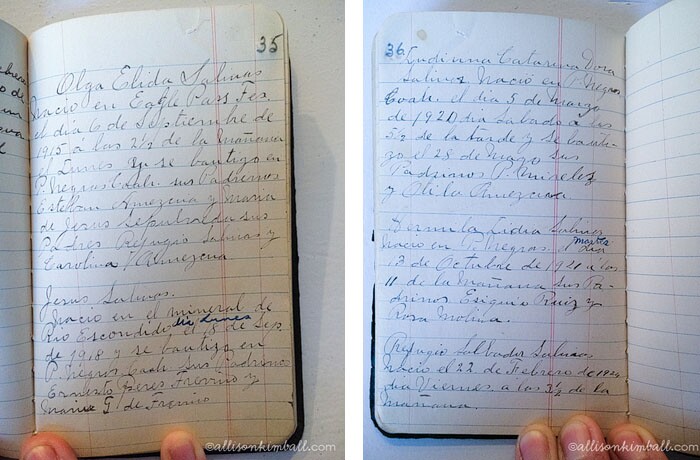 35
Olga Elida Salinas
Nacio en Eagle Pass Tex
el dia 6 de Septiembre de
1915 a las 2½ de la Mañana
Lunes y se bautizo en
P. Negras Coah. sus Padrinos
Esteban Amezcua y Maria
de Jesus Sepulveda sus
Padres Refugio Salinas y
Carolina Amezcua
Jesus Salinas.
Nacio en el mineral de
Rio Escondido dia Lunes 8 de Sep
de 1918 y se bautizo en
P. Negras Coah. Sus Padrinos
Ernesto Peres Trevino y
G. de Trevino
©allisonkimball.com
36
Catarina Dora
Salinas Nacio en P. Negras
Coah. el dia 5 de Marzo
de 1920 dia Sabado a las
5½ de la tarde y se bauti-
zo el 28 de Mayo sus
Padrinos P.
y Otila Amezcua
Lidia Salinas
Nacio en P. Negras martes dia
13 de Octubre de 1921 a las
11 de la Mañana sus Pa-
drinos Esiquio Ruiz y
Rosa Molina.
Refugio Salbador Salinas
Nacio el 22 de Febrero de 1924
dia Viernes a las 3½ de la
Mañana.
©allisonkimball.com